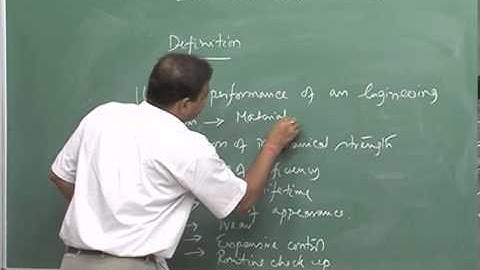 Definition
performance of an Engineering
→ Material
of mechanical strength
of
lifetime
of appearance.
→ Wear
→ Expensive control
→ Routine check up